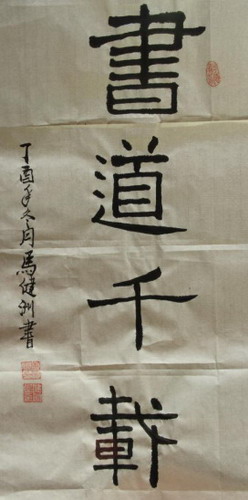 書道千載
丁酉年冬月馬健利書